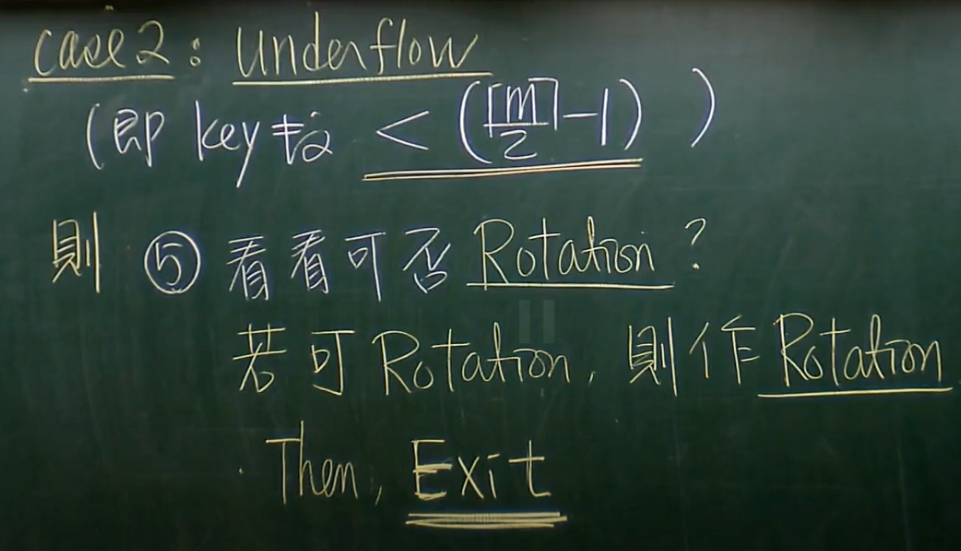 case 2: Underflow
(即 key 故 < (⌈m/2⌉-1) )
則 ⑤ 看看可否 Rotation?
若可 Rotation, 則作 Rotation
Then, Exit